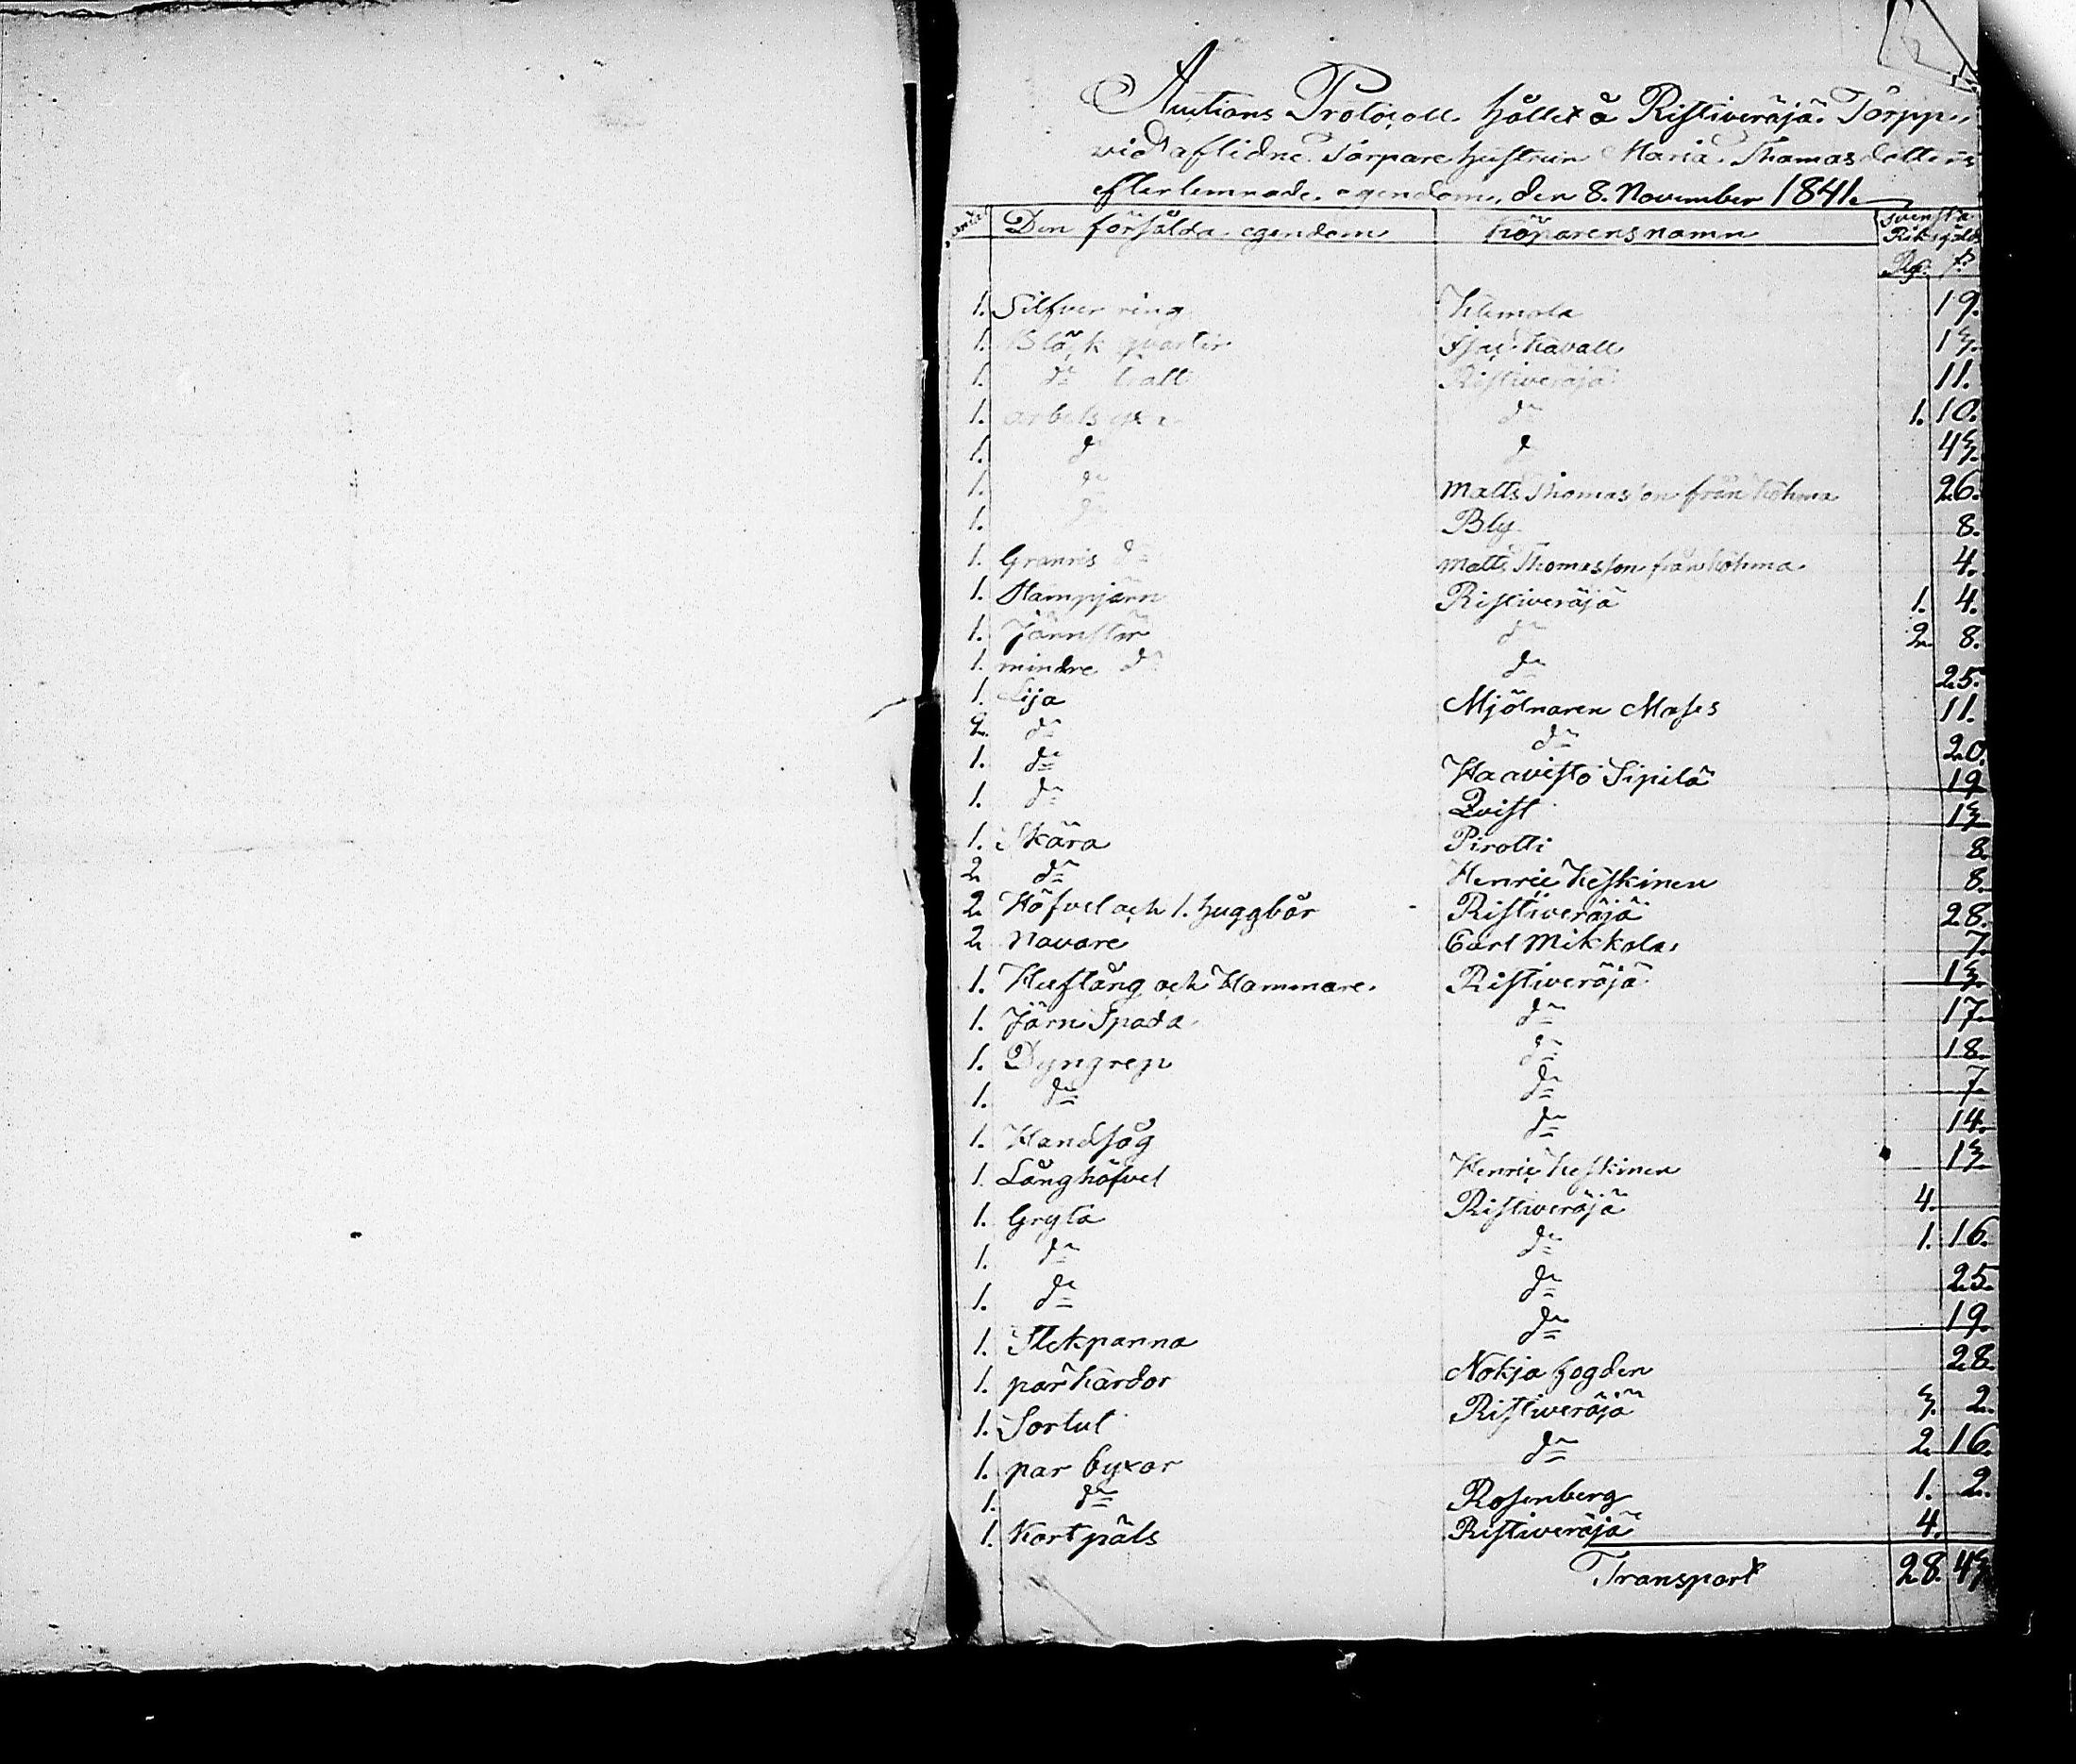 Auctions Protocoll hållet å Ristiveräjä Torpp
vid aflidne Torpare hustrun Maria Thomasdotters
efterlemnade egendom, den 8. November 1841.
Den försålda egendom Köparens namn Svenska Riksgälds
Rd. s.
1. Silfver ring Klemola 19.
1. Bläck qvarter Isac Kavall 13.
1. do Ristiveräjä 11.
1. do 1. 10.
1. do do 43.
1. do Matts Thomasson från Köhma 26.
1. do Bly 8.
1. Granris do Matts Thomasson från Köhma 4.
1. Hampjern Ristiveräjä 1. 4.
1. Järnstör do 2. 8.
1. mindre do do 25.
1. Lija Mjölnaren Moses 11.
2. do do 20.
1. do Haavisto Sipilä 19
1. do Qvist 13
1. Skära Pirotti 8.
2 do Henric Keskinen 8.
2. Höfvel och 1. huggbår Ristiveräjä 28.
2 Navare Carl Mikkola 7.
1. Huftång och Hammare. Ristiveräjä 13.
1. Järn Spada do 17.
1. Dyngrep do 18.
1. do do 7.
1. Handsåg do 14.
1. Långhöfvel Henric Keskinen 13.
1. Gryta Ristiveräjä 4.
1. do do 1. 16.
1. do do 25.
1. Stekpanna do 19.
1. par Kardor Nokja fogden 28.
1. Sortut Ristiveräjä 3. 2.
1. par byxor do 2. 16.
1. do Rosenberg 1. 2.
1. Kort päls Ristiveräjä 4.
Transport 28. 43